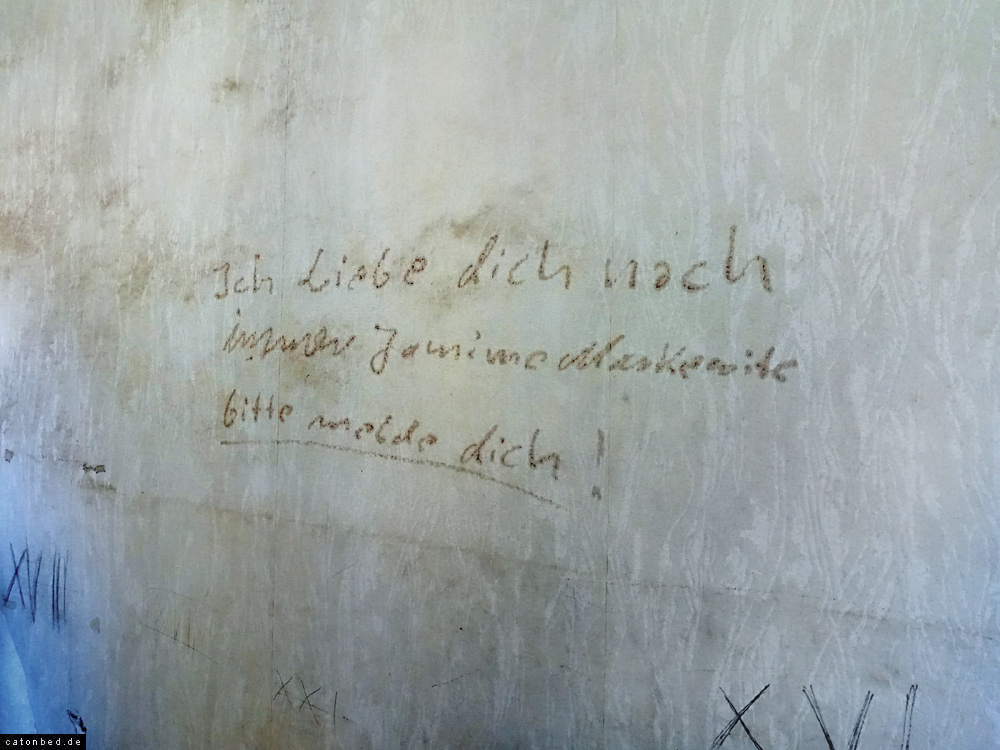 Ich Liebe dich noch
immer Jasmine Maskewitz
bitte melde dich!
XVIII
XXI.
XVI
catonbed.de